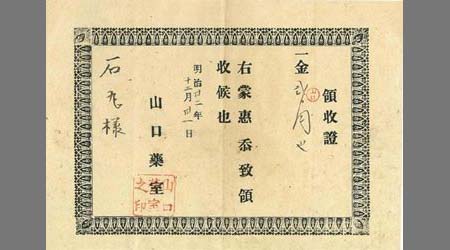 領收證
一金 円也
右蒙惠忝致領
收候也
明治廿二年
十二月 日
山口藥室
山口藥室之印
石丸樣